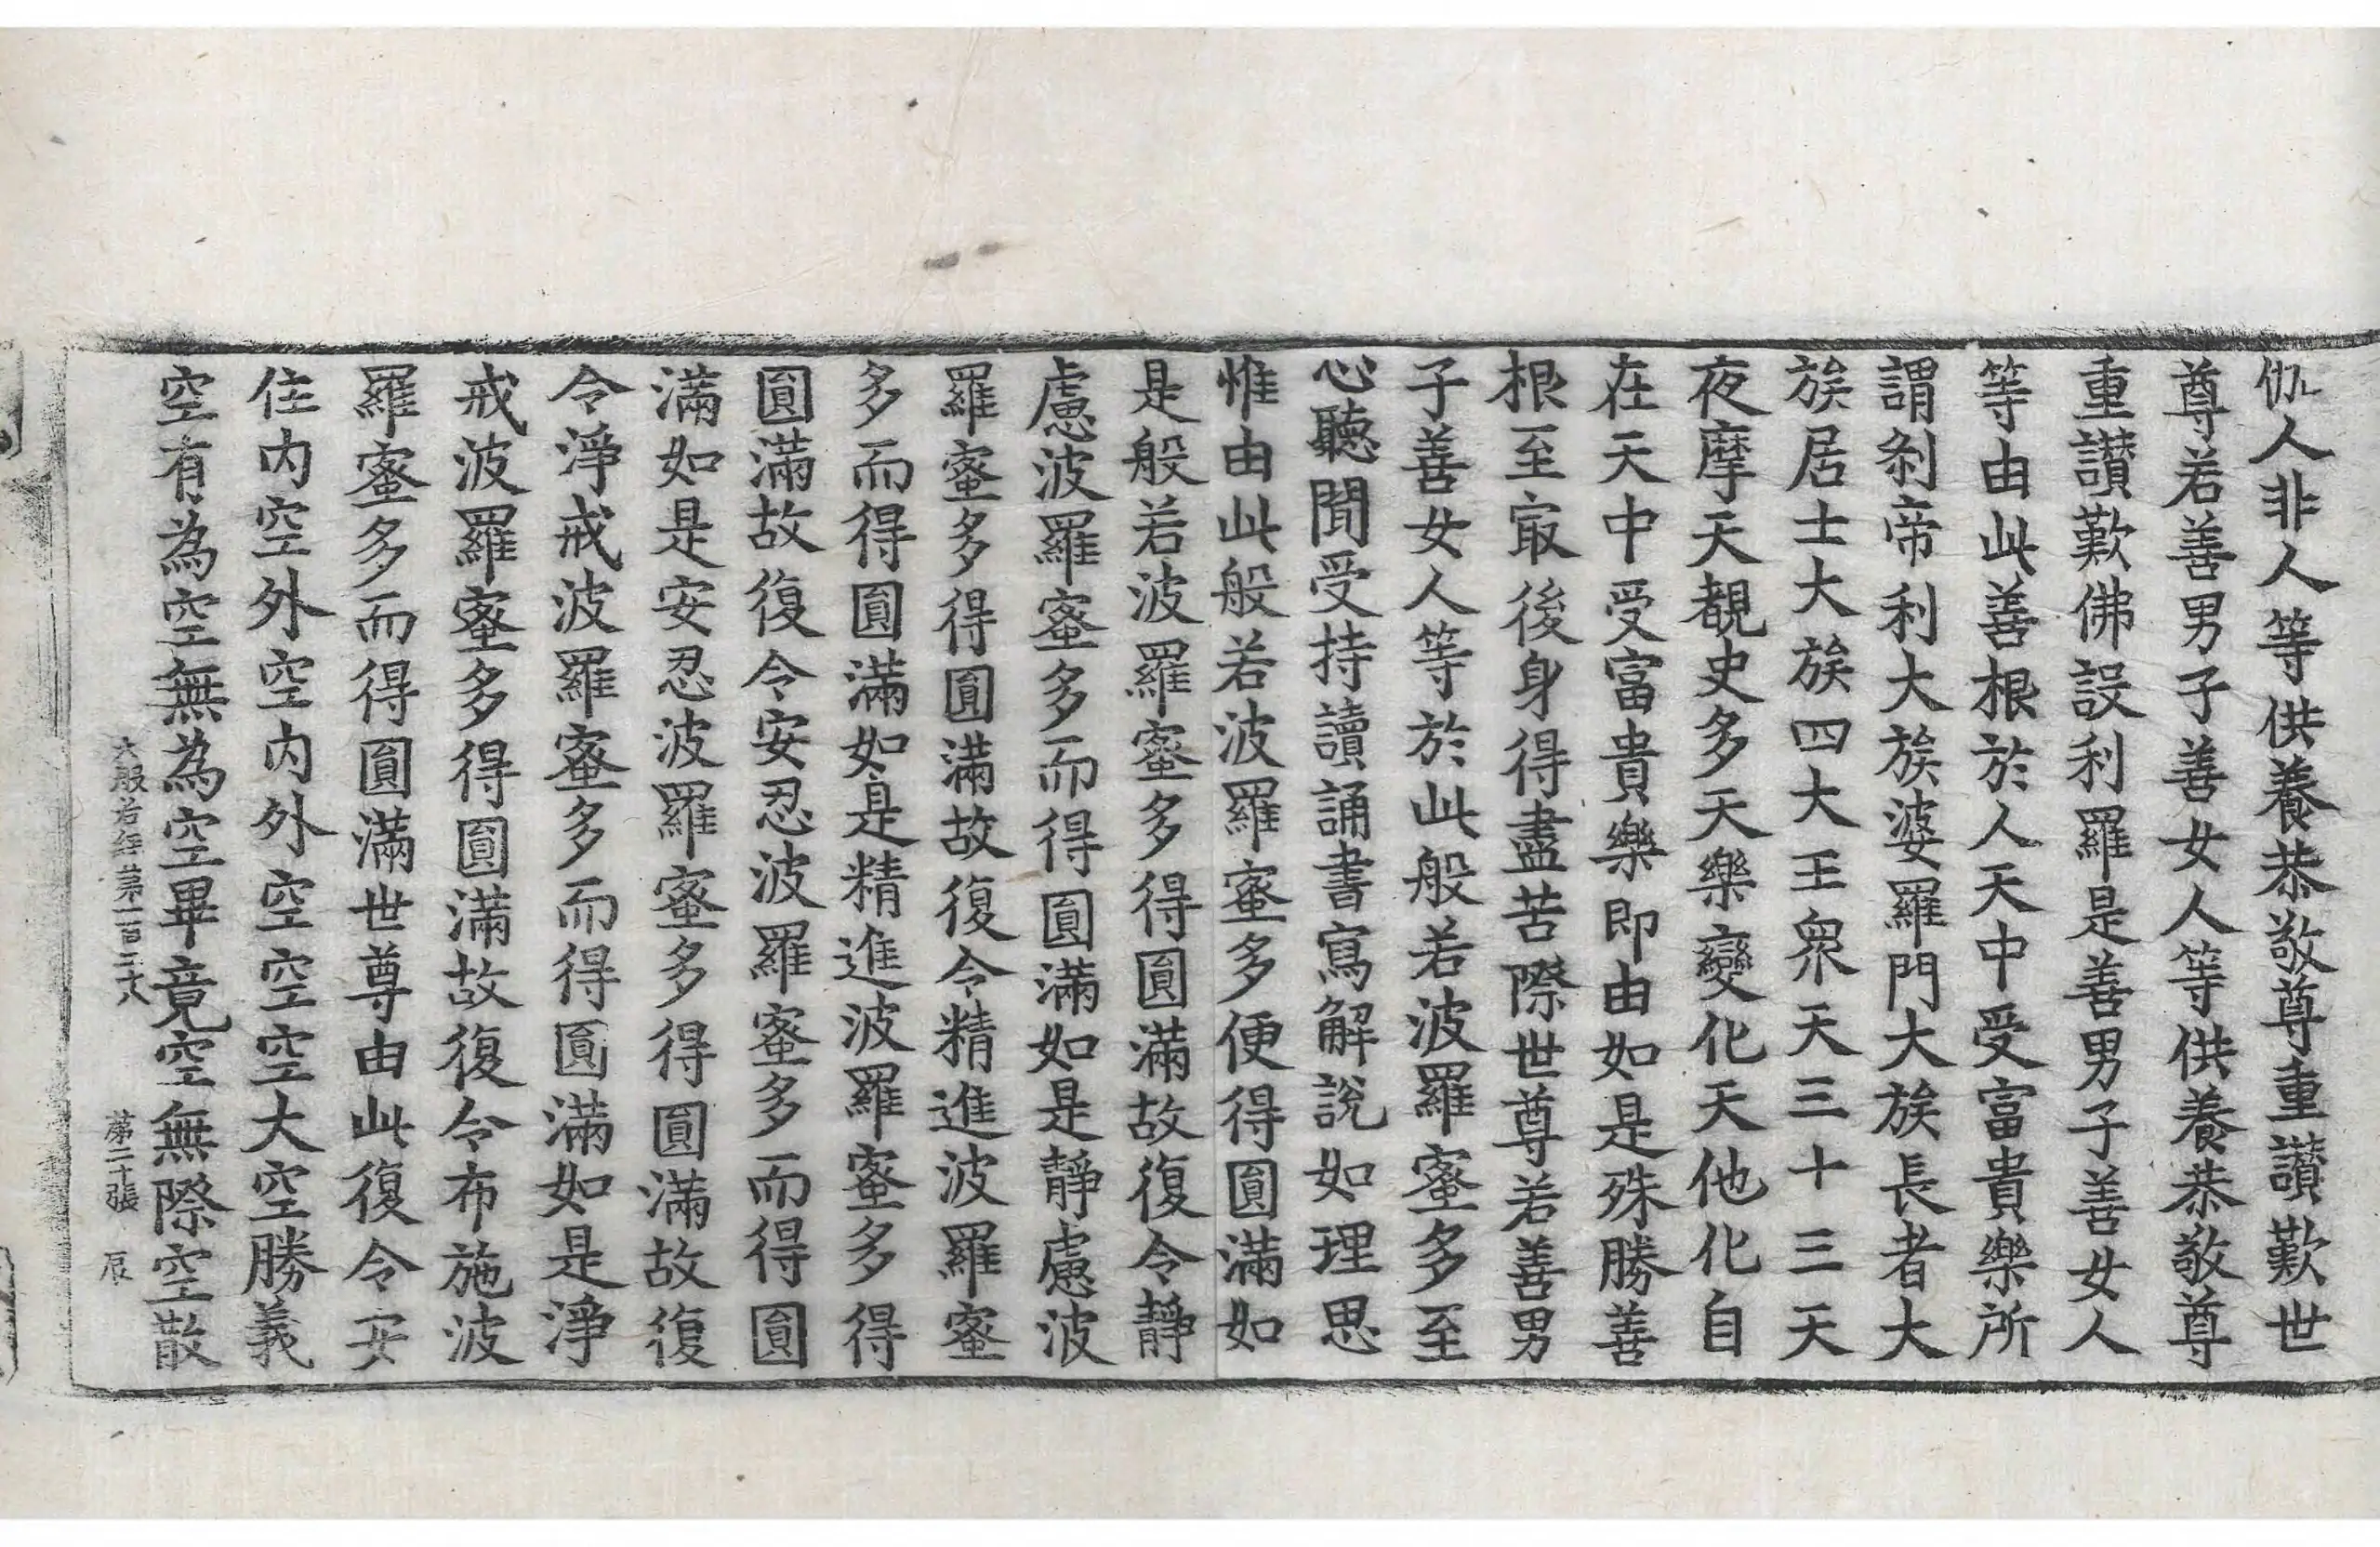 伽人非人等供養恭敬尊重讚歎世
尊若善男子善女人等供養恭敬尊
重讚歎佛設利羅是善男子善女人
等由此善根於人天中受富貴樂所
謂剎帝利大族婆羅門大族長者大
族居士大族四大王衆天三十三天
夜摩天覩史多天樂變化天他化自
在天中受富貴樂即由如是殊勝善
根至㝡後身得盡苦際世尊若善男
子善女人等於此般若波羅蜜多至
心聽聞受持讀誦書寫解說如理思
惟由此般若波羅蜜多便得圓滿如
是般若波羅蜜多得圓滿故復令靜
慮波羅蜜多而得圓滿如是靜慮波
羅蜜多得圓滿故復令精進波羅蜜
多而得圓滿如是精進波羅蜜多得
圓滿故復令安忍波羅蜜多而得圓
滿如是安忍波羅蜜多得圓滿故復
令淨戒波羅蜜多而得圓滿如是淨
戒波羅蜜多得圓滿故復令布施波
羅蜜多而得圓滿世尊由此復令安
住內空外空內外空空空大空勝義
空有為空無為空畢竟空無際空散
大般若經第一百二十八 第二十張 辰